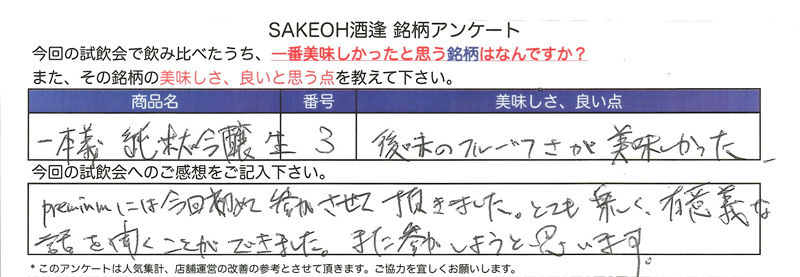 SAKEOH酒逢 銘柄アンケート
今回の試飲会で飲み比べたうち、一番美味しかったと思う銘柄はなんですか?
また、その銘柄の美味しさ、良いと思う点を教えて下さい。
商品名 番号 美味しさ、良い点
一本義 純米吟醸 生 3 後味のフルーツさが美味しかった
今回の試飲会へのご感想をご記入下さい。
premiumには今回初めて参加させて頂きました。とても楽しく、有意義な
話を聞くことができました。また参加しようと思います。
*このアンケートは人気集計、店舗運営の改善の参考とさせて頂きます。ご協力を宜しくお願いします。